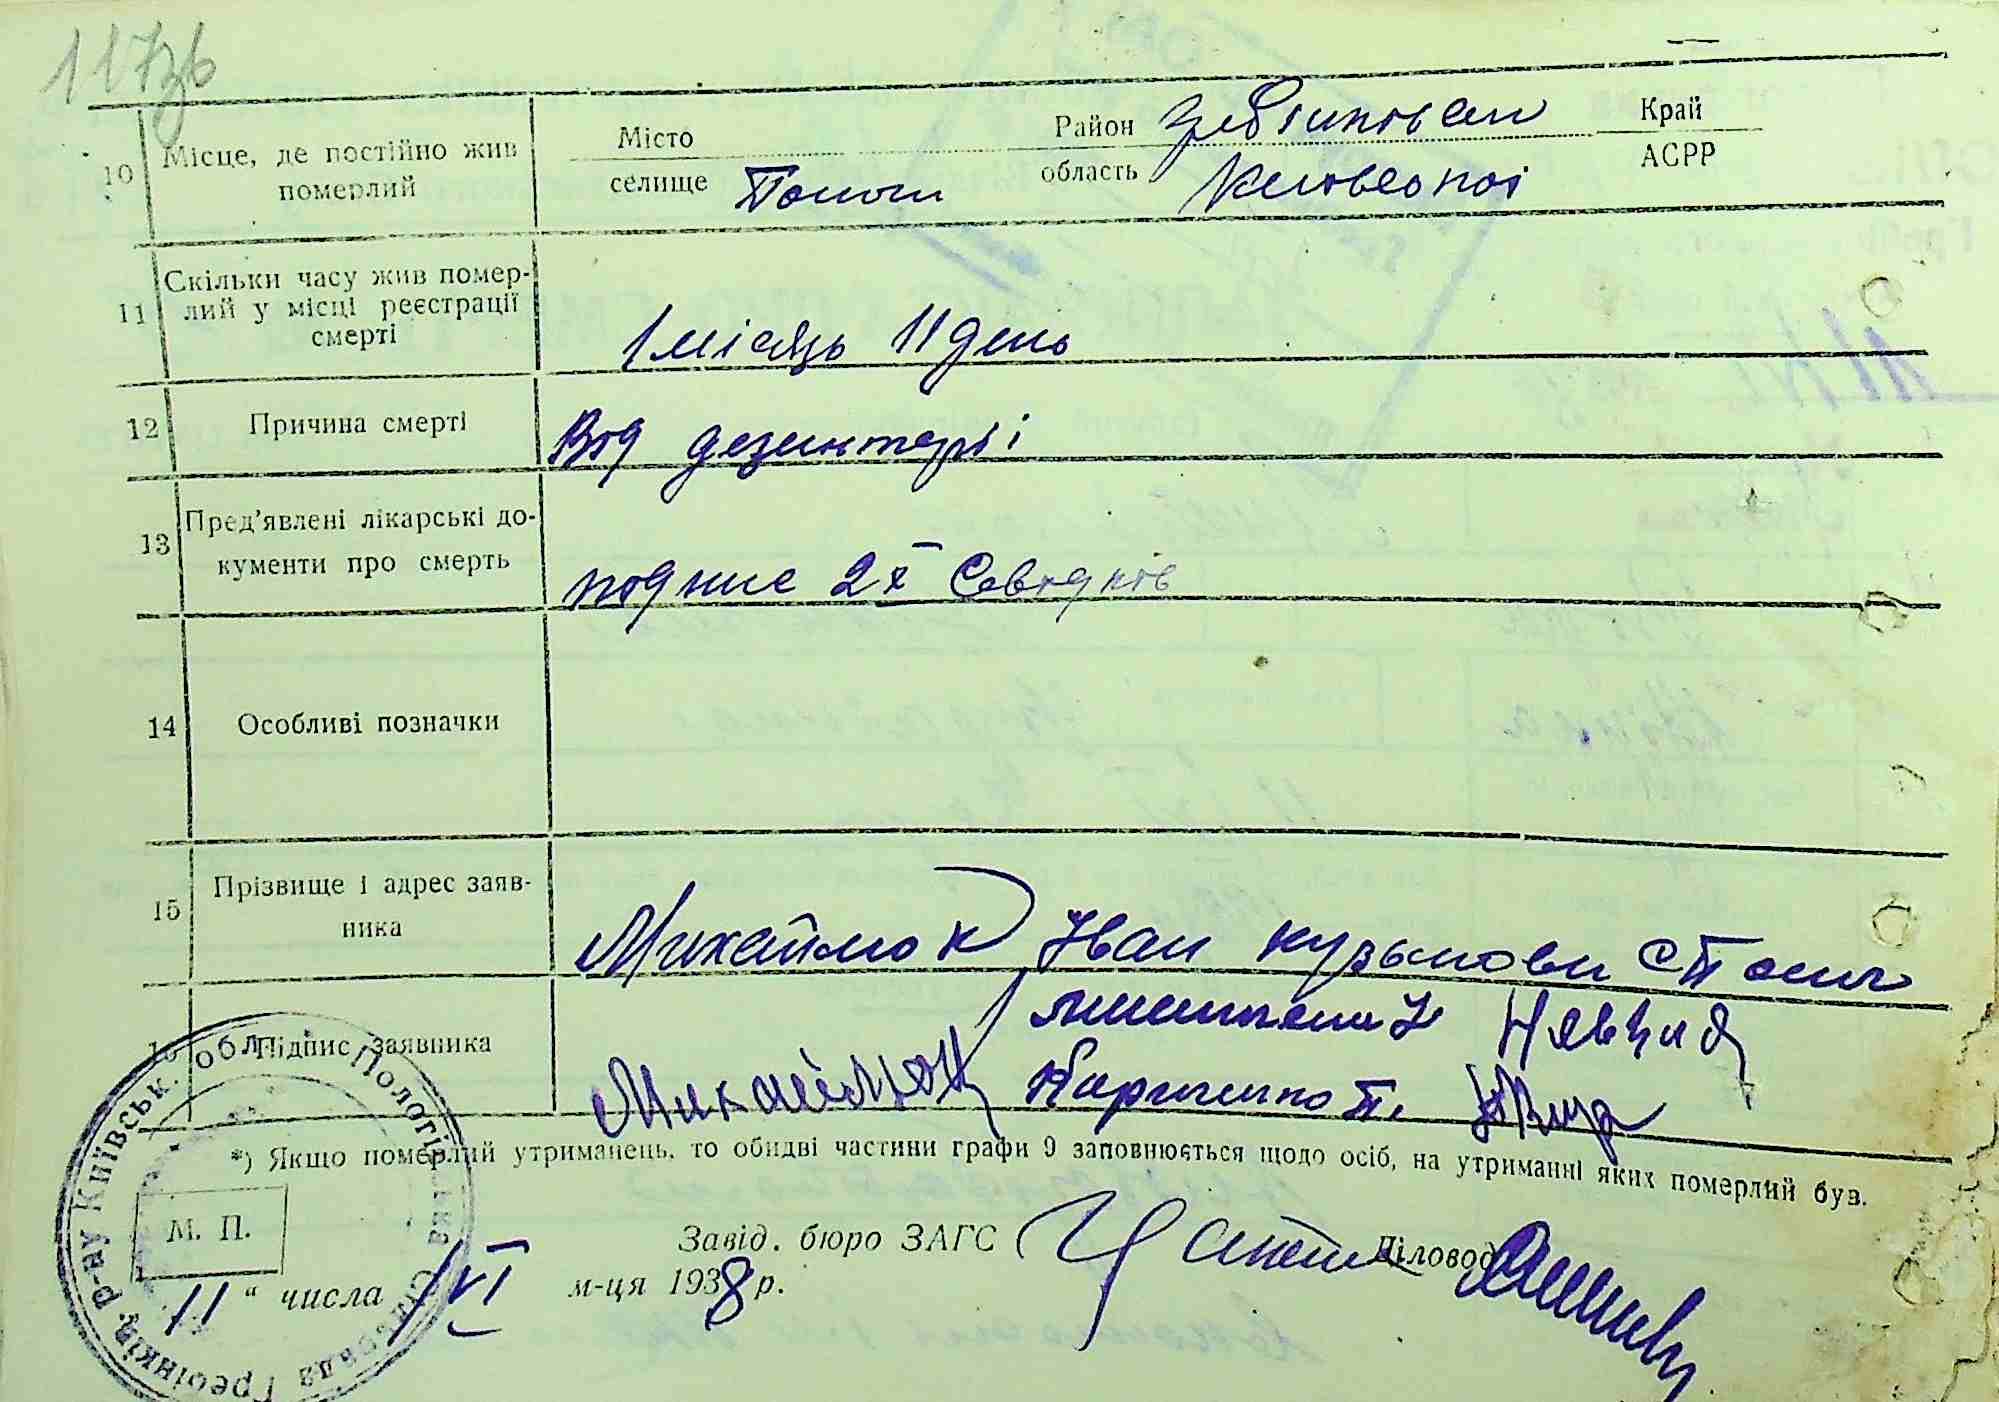 117зв
10 Місце, де постійно жив померлий
Місто селище
Район Гребінківськ
область Київської
Край АСРР
11 Скільки часу жив помер-
лий у місці реєстрації
смерті
1 місяць 11 день
12 Причина смерті
Від дезинтерії
13 Пред'явлені лікарські до-
кументи про смерть
подпис 2х Свідків
14 Особливі позначки
15 Прізвище і адрес заяв-
ника
Михайлюк Іван Кузьмови
Підпис заявника
Михайлюк
*) Якщо померлий утриманець, то обидві частини графи 9 заповнюється щодо осіб, на утриманні яких померлий був.
М. П.
Завід. бюро ЗАГС
Діловод
11 " числа VI м-ця 1938 р.
Пологівська Сільрада Гребінків. р-ну Київськ. обл.